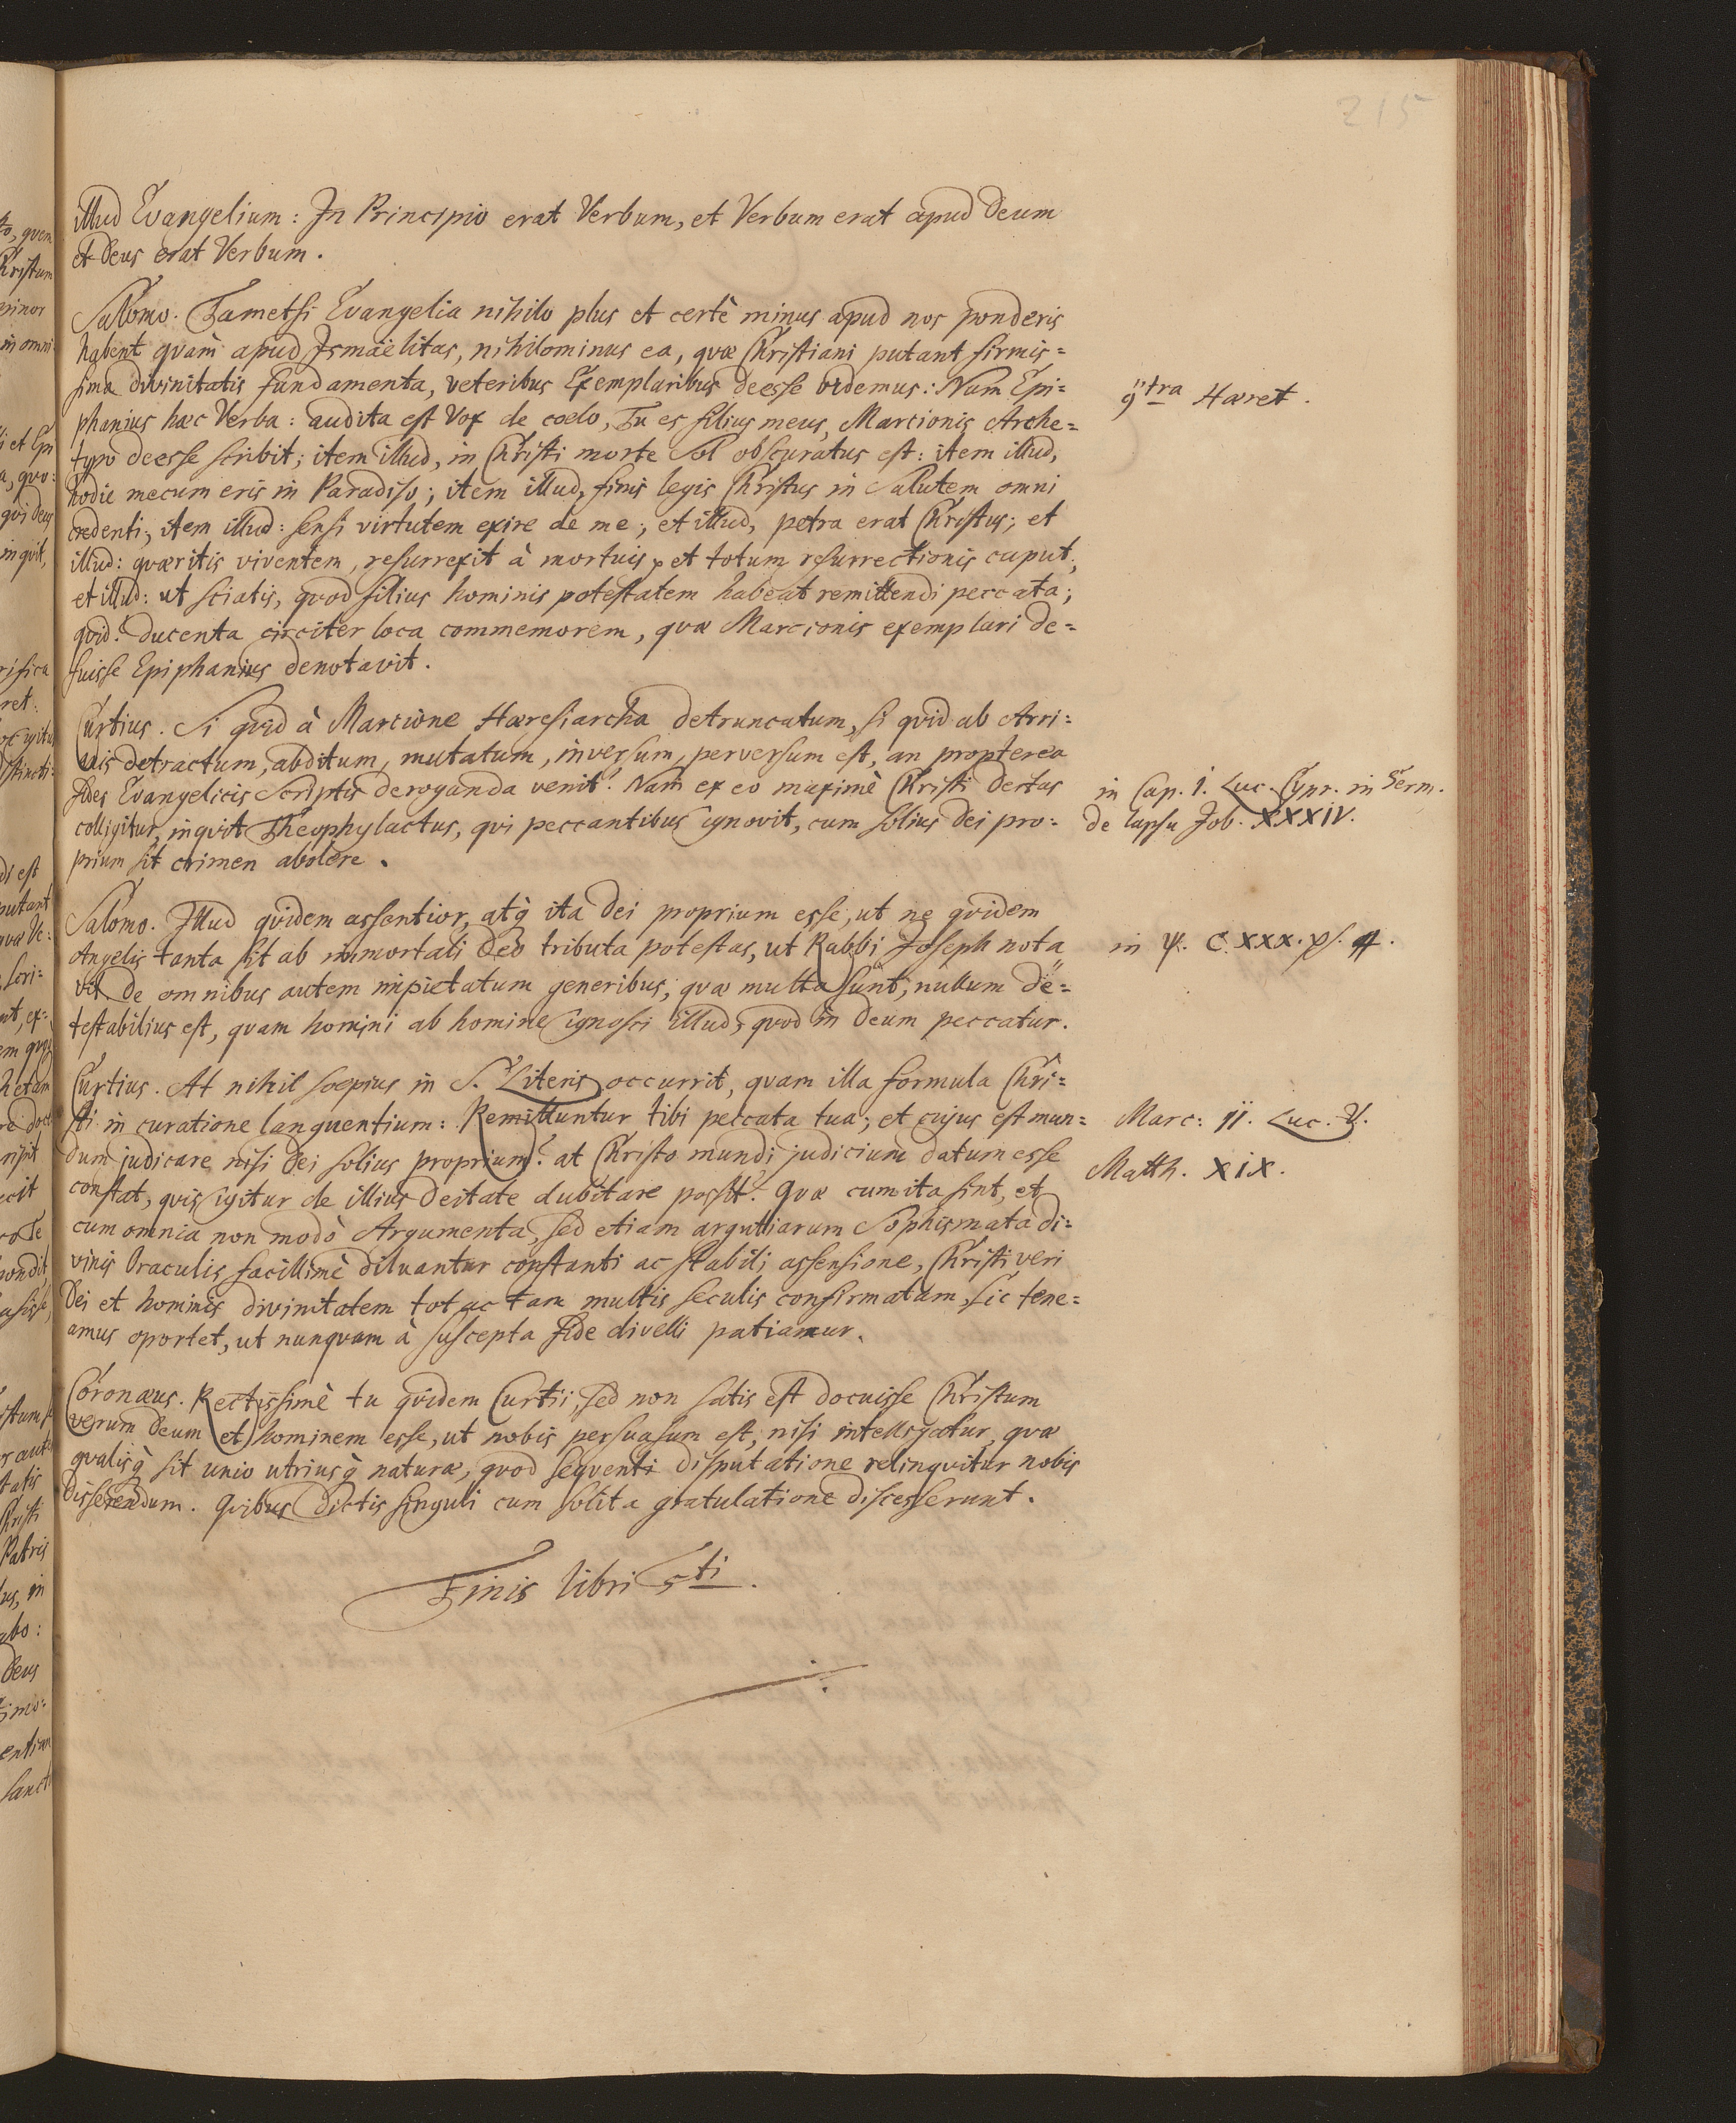 215
illud Evangelium: In Principio erat Verbum, et Verbum erat apud Deum
et Deus erat Verbum.
Salomo. Tametsi Evangelia nihilo plus et certè minus apud nos ponderis
habent quàm apud Ismaëlitas, nihilominus ea, quæ Christiani putant firmis=
sima divinitatis fundamenta, veteribus Exemplaribus deesse videmus: Nam Epi=
phanius hæc Verba: audita est Vox de coelo, Tu es filius meus, Marcionis Arche=
typo deesse scribit; item illud, in Christi morte Sol obscuratus est: item illud,
hodie mecum eris in Paradiso; item illud, finis legis Christus in Salutem omni
credenti; item illud: sensi virtutem exire de me; et illud, petra erat Christus; et
illud: quæritis viventem, resurrexit à mortuis, et totum resurrectionis caput;
et illud: ut sciatis, quod filius hominis potestatem habeat remittendi peccata;
quid? ducenta circiter loca commemorem, quæ Marcionis exemplari de=
fuisse Epiphanius denotavit.
9tra Hæret.
Curtius. Si quid à Marcione Hæresiarcha detruncatum, si quid ab Arri=
anis detractum, abditum, mutatum, inversum, perversum est, an propterea
fides Evangelicis Scriptis deroganda venit? Nam ex eo maximè Christi deitas
colligitur, inquit Theophylactus, qui peccantibus ignovit, cum solius Dei pro=
prium sit crimen abolere.
in Cap. 1. Luc. Cypr. in Serm.
de lapsu Job. XXXIV.
Salomo. Illud quidem assentior, atq ita Dei proprium esse, ut ne quidem
Angelis tanta sit ab immortali Deo tributa potestas, ut Rabbi Joseph nota
vit. De omnibus autem impietatum generibus, quæ multa sunt, nullum de=
testabilius est, quam homini ab homine ignosci illud, quod in Deum peccatur.
in ψ. C.XXX. 4.
Curtius. At nihil sæpius in S. Literis occurrit, quam illa formula Chri=
sti in curatione languentium: Remittuntur tibi peccata tua; et cujus est mun=
dum judicare nisi Dei solius proprium? at Christo mundi judicium datum esse
constat, quis igitur de illius deitate dubitare possit? Quæ cum ita sint, et
cum omnia non modò Argumenta, sed etiam argutiarum Sophismata di=
vinis Oraculis facillimè diluantur constanti ac stabili assensione, Christi veri
Dei et hominis divinitatem tot ac tam multis seculis confirmatam, sic tene=
amus oportet, ut nunquam à suscepta fide divelli patiamur.
Marc: II. Luc. V.
Matth. XIX.
Coronæus. Rectissimè tu quidem Curtii, sed non satis est docuisse Christum
verum Deum et hominem esse, ut nobis persuasum est, nisi intelligatur, quæ
qualisq sit unio utriusq naturæ, quod sequenti disputatione relinquitur nobis
disserendum. Quibus dictis singuli cum solita gratulatione discesserunt.
Finis libri 5ti.